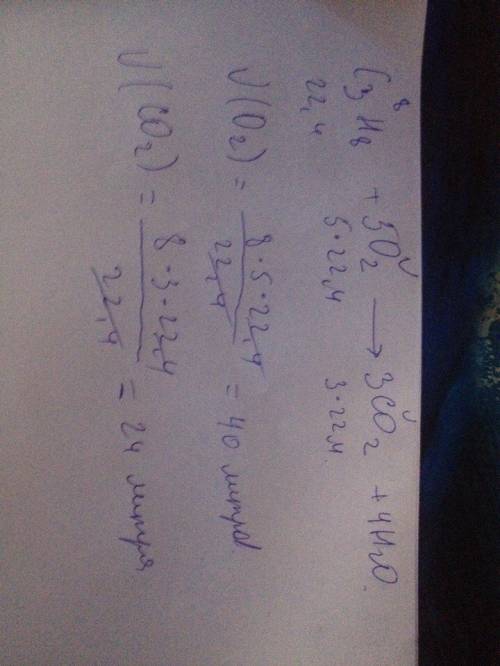 8 V V
C₃H₈ + 5O₂ → 3CO₂ + 4H₂O.
22,4 5·22,4 3·22,4
V(O₂) = 8·5·22,4 / 22,4 = 40 литров.
V(CO₂) = 8·3·22,4 / 22,4 = 24 литра